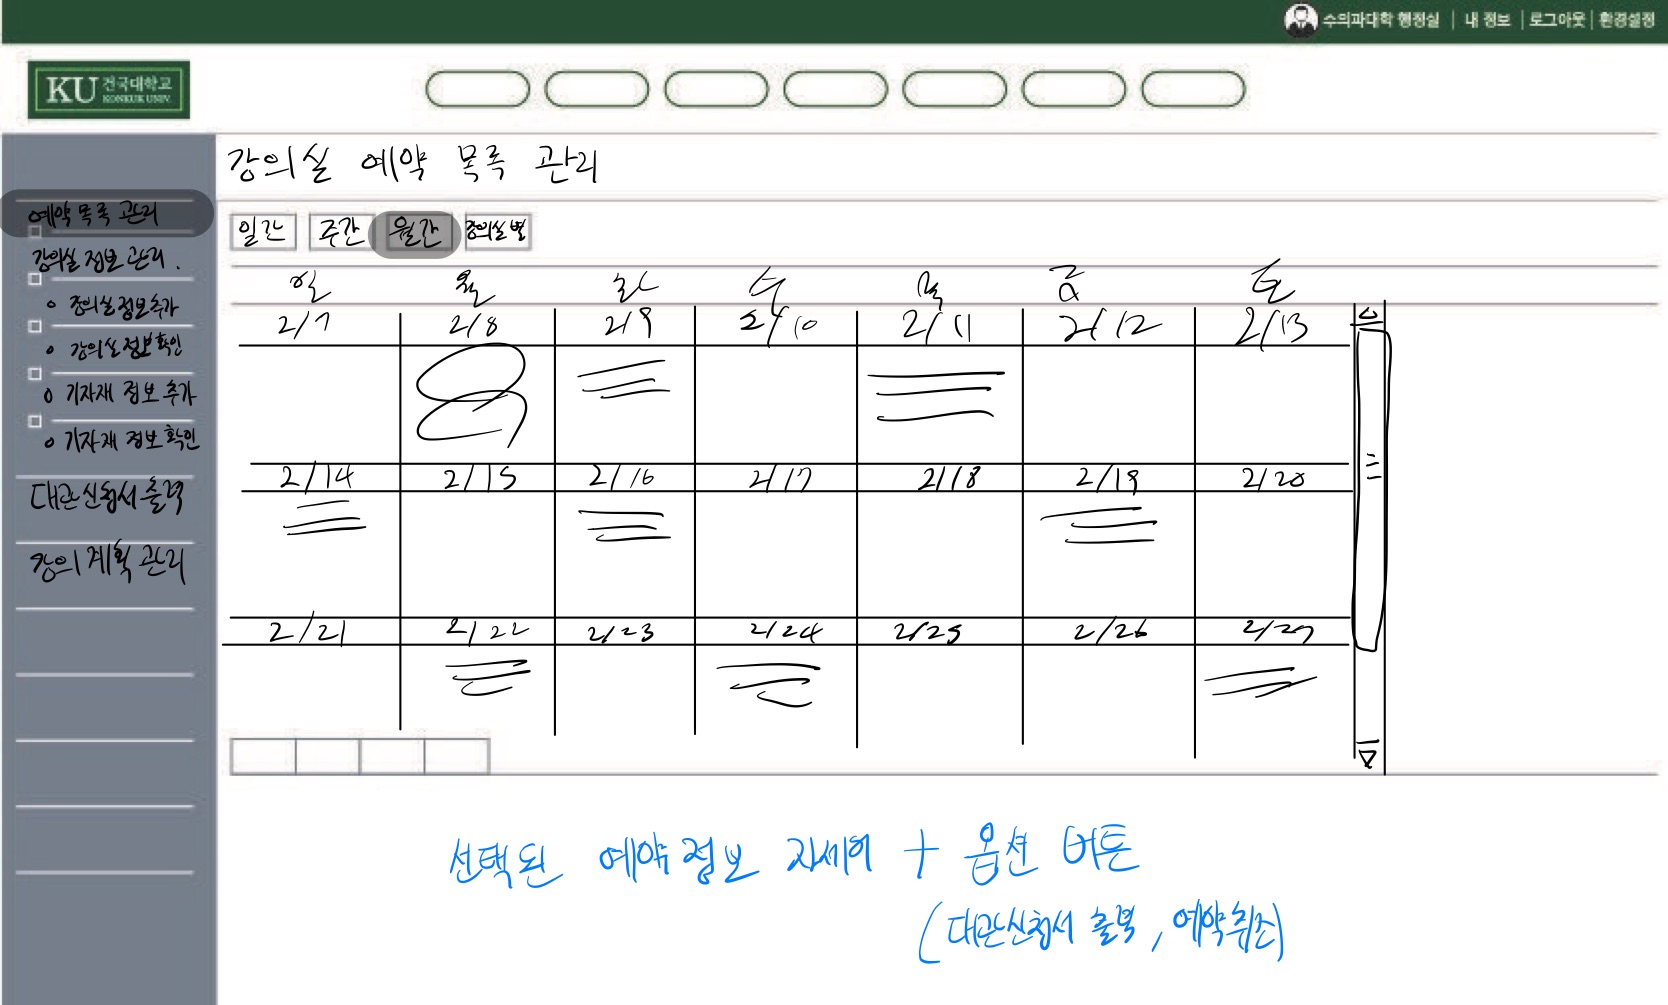 수의과대학 행정실 | 내 정보 | 로그아웃 | 환경설정
KU 건국대학교
KONKUK UNIV.
강의실 예약 목록 관리
예약 목록 관리
강의실 정보 관리.
강의실 정보 추가
강의실 정보 확인
기자재 정보 추가
기자재 정보 확인
대관신청서 출력
강의계획 관리
일간 주간 월간 강의실별
일 월 화 수 목 금 토
2/7 2/8 2/9 2/10 2/11 2/12 2/13
2/14 2/15 2/16 2/17 2/18 2/19 2/20
2/21 2/22 2/23 2/24 2/25 2/26 2/27
선택된 예약정보 자세히 + 옵션 버튼
(대관신청서 출력, 예약취소)